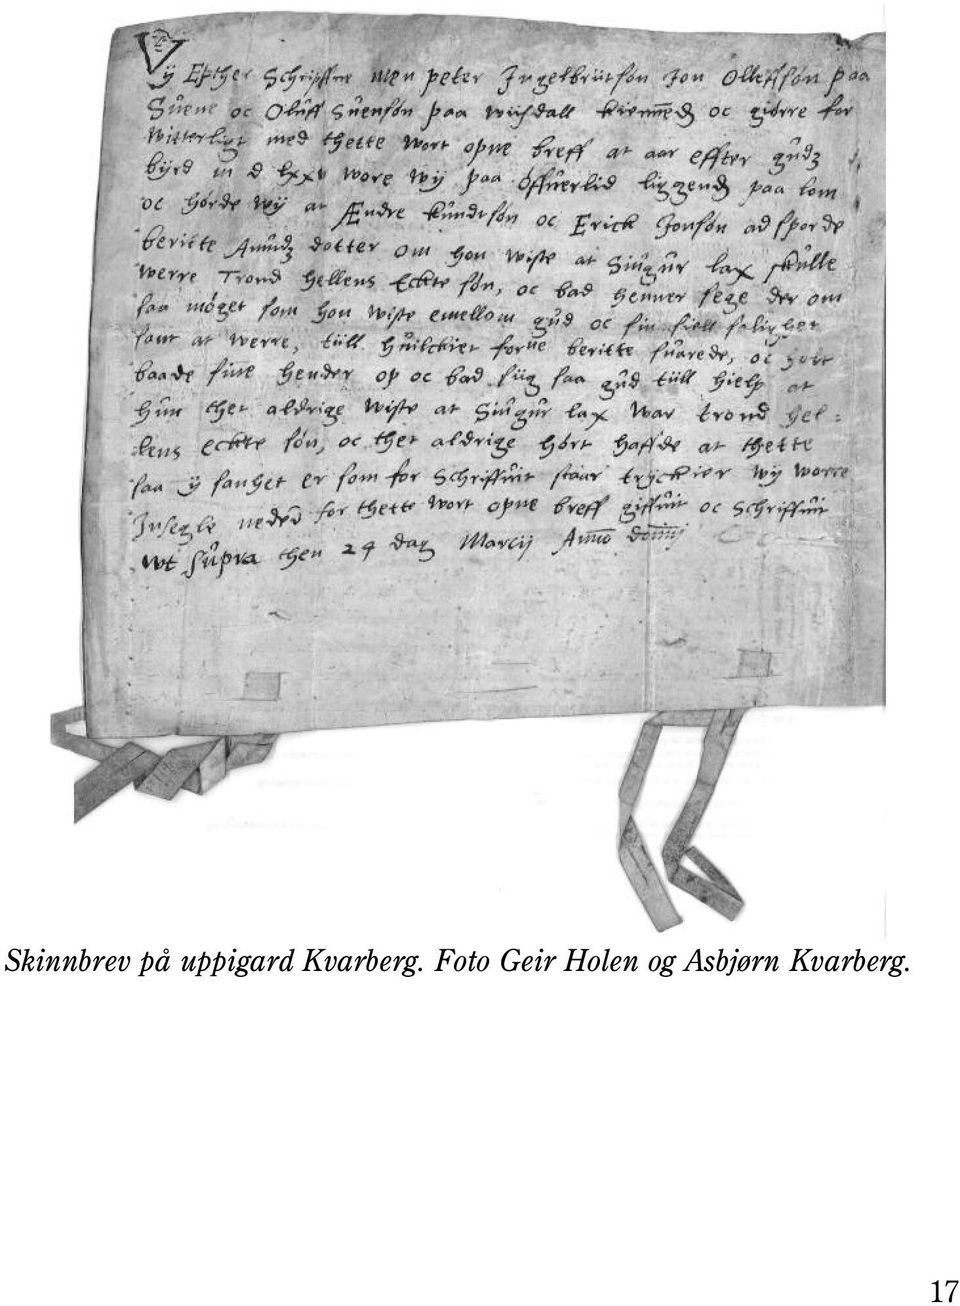 Vÿ Epther Schriffne men peter Ingelbrütsøn Jon Olleffsøn paa
Sŭene oc Olŭff Sŭensøn paa wiisdall kiennedz oc giørre for
witterligt med thette wort opne breff at aar effter gŭdz
bÿrd m d lxxv wore wÿ paa øffŭerlid liggendz paa lom
oc hørde wÿ at Ændre kŭndtsøn oc Erick Jonsøn adsporde
beritte Amŭndz dotter om hon wiste at Siŭgŭr lax skŭlle
werre Trond hellens Eckte søn, oc bad henner sege der om
saa møget som hon wiste emellom gŭd oc sin siell saligher
samt at werre, tüll hŭilckiet forne beritte sŭarede, oc holt
baade sine hender op oc bad siig saa gŭd tüll hielp at
hŭn thet aldrige wiste at Siŭgŭr lax war trond hel-
lens eckte søn, oc thet aldrige hørt haffde at thette
saa ÿ sanhet er som for Schriffŭit staar tryckier wÿ worre
Insegle neden for thette wort opne breff giffŭit oc Schriffŭit
wt sŭpra then 24 dag Marcij Anno domij
Skinnbrev på uppigard Kvarberg. Foto Geir Holen og Asbjørn Kvarberg.
17